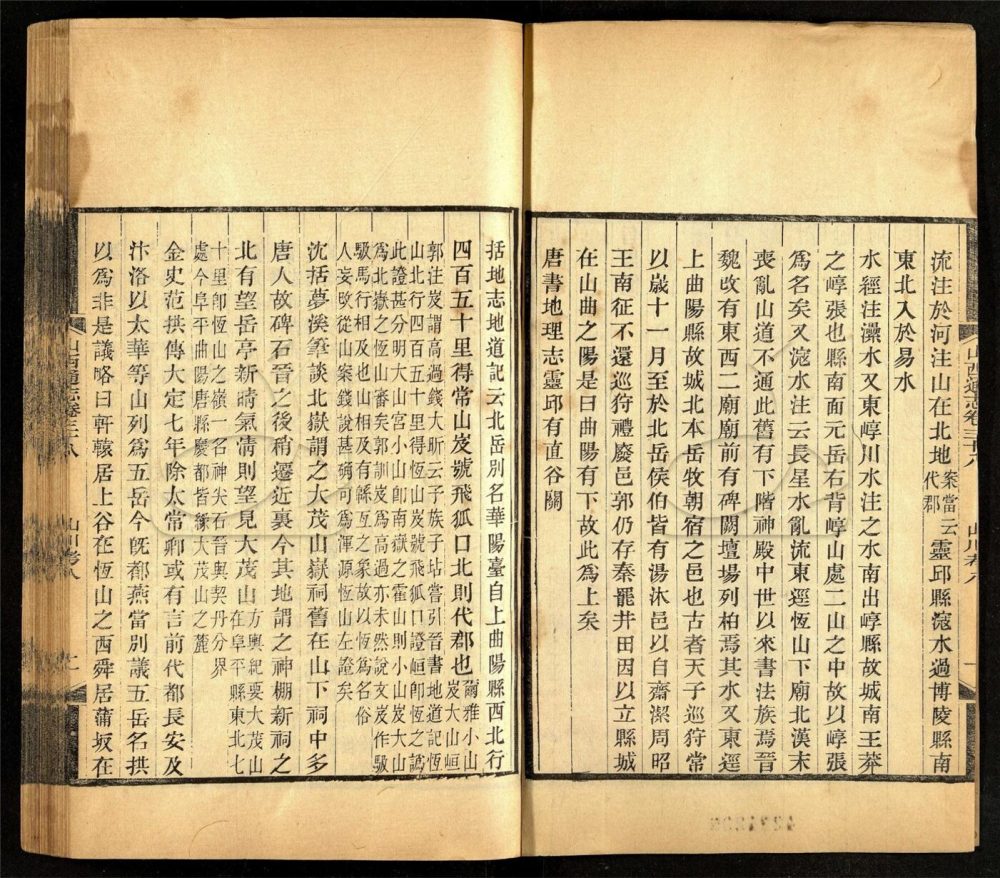 流注於河注山在北地案當云代郡靈邱縣滱水過博陵縣南
東北入於易水
水經注㶟水又東崞川水注之水南出崞縣故城南王莽
之崞張也縣南面元岳右背崞山處二山之中故以崞張
爲名矣又滱水注云長星水亂流東逕恆山下廟北漢末
喪亂山道不通此舊有下階神殿中世以來書法族焉晉
魏改有東西二廟廟前有碑闕壇場列柏焉其水又東逕
上曲陽縣故城北本岳牧朝宿之邑也古者天子巡狩常
以歲十一月至於北岳侯伯皆有湯沐邑以自齋潔周昭
王南征不還巡狩禮廢邑郭仍存秦罷井田因以立縣城
在山曲之陽是曰曲陽有下故此爲上矣
唐書地理志靈邱有直谷關
山西通志卷三十八
山川考八
括地志地道記云北岳別名華陽臺自上曲陽縣西北行
四百五十里得常山岌號飛狐口北則代郡也爾雅小山岌大山峘
郭注岌謂高過錢大昕云子族子坫嘗引晉書地道記恆
山北行四百五十里得恆山岌號飛狐口證峘卽恆之譌
此證甚分明大山宮小山卽南嶽之霍山則小山岌大山
爲北嶽之恆山審矣郭訓岌爲高過亦未然說文岌作馺
馺馬行相及也山相及有緜亙之象故以恆爲名今俗
人妄改從山案錢說甚碻可爲渾源恆山左證矣
沈括夢溪筆談北嶽謂之大茂山嶽祠舊在山下祠中多
唐人故碑石晉之後稍遷近裏今其地謂之神棚新祠之
北有望岳亭新晴氣清則望見大茂山方輿紀要大茂山在阜平縣東北七
十里卽恆山之嶺一名神尖石晉與契丹分界
處今阜平曲陽唐縣慶都皆緣大茂山之麓
金史范拱傳大定七年除太常卿或有言前代都長安及
汴洛以太華等山列爲五岳今旣都燕當別議五岳名拱
以爲非是議略曰軒轅居上谷在恆山之西舜居蒲坂在
山西通志卷三十八
山川考八